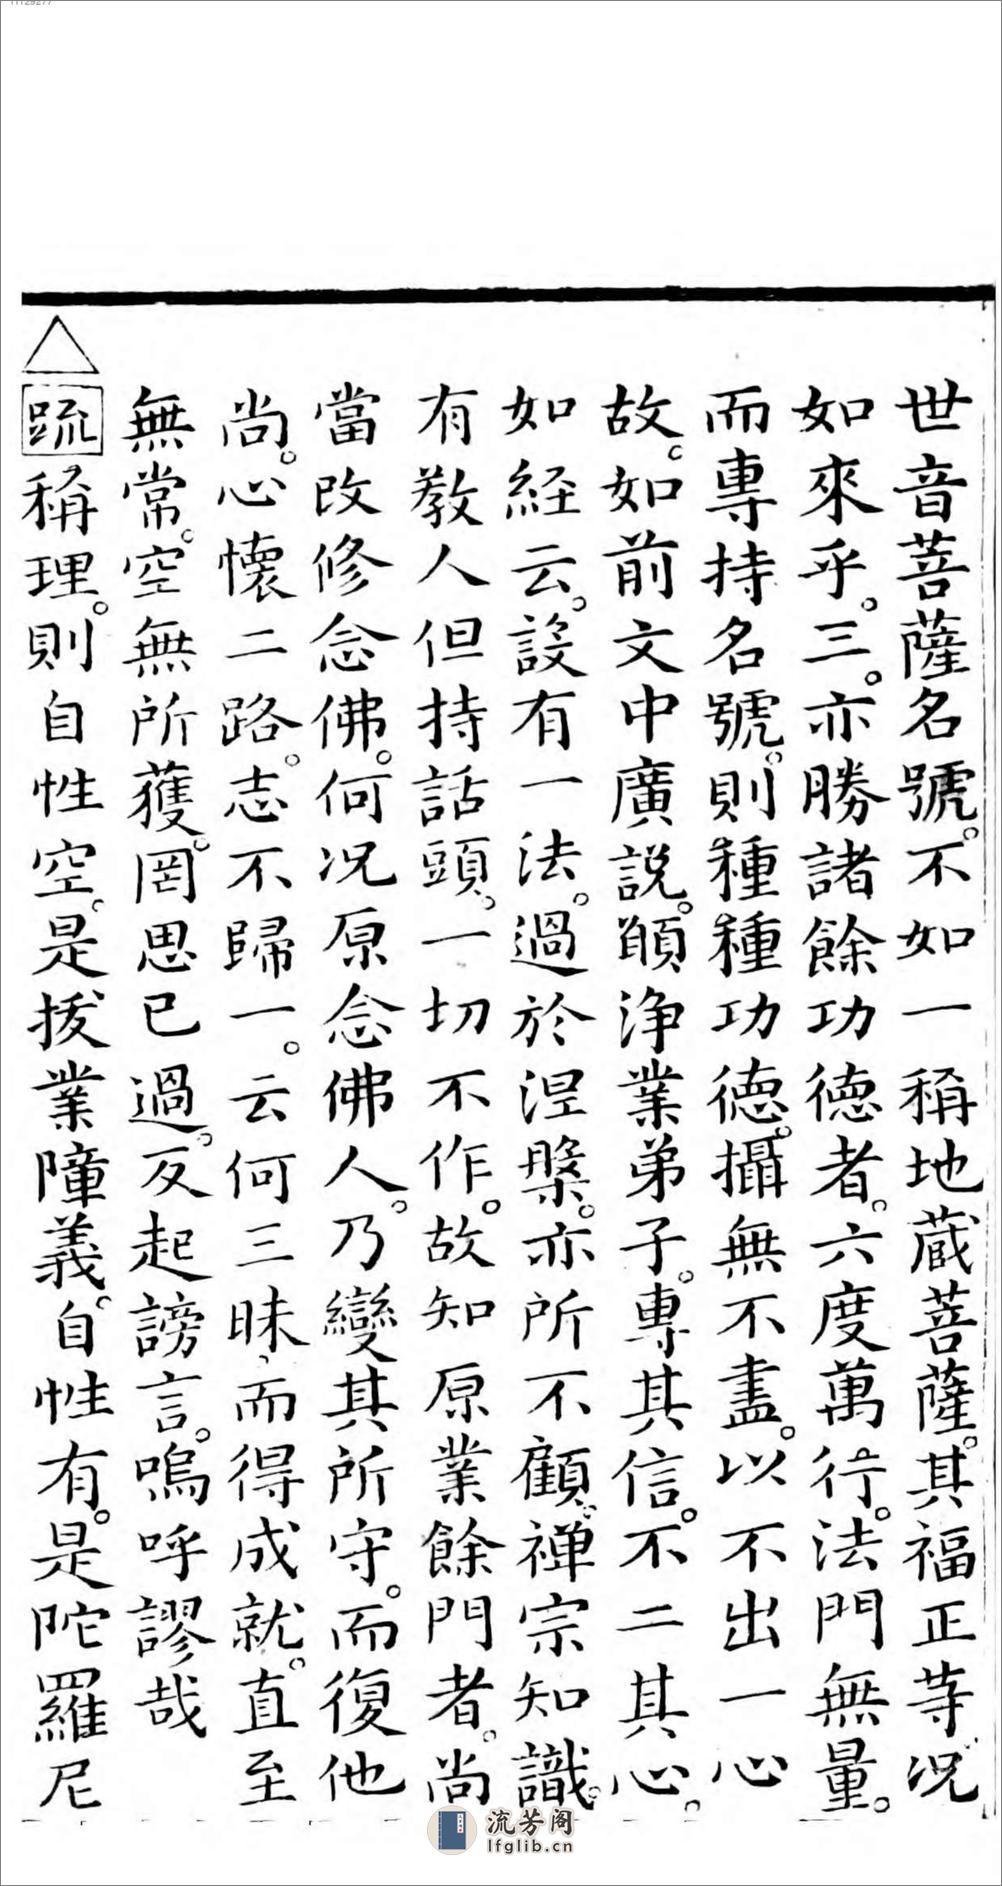 世音菩薩名號。不如一稱地蔵菩薩。其福正等。况
如來乎。三。亦勝諸餘功德者。六度萬行。法門無量。
而專持名號。則種種功德。攝無不盡。以不出一心
故。如前文中廣説。願淨業弟子。專其信。不二其心。
如經云。設有一法。過於涅槃。亦所不顧。禅宗知識。
有教人但持話頭。一切不作。故知原業餘門者。尚
當改修念佛。何况原念佛人。乃變其所守。而復他
尚。心懷二路。志不歸一。云何三昧、而得成就。直至
無常。空無所獲。罔思已過。反起謗言。嗚呼謬哉
△疏稱理。則自性空。是拔業障義。自性有。是陀羅尼
流芳阁
lfglib.cn